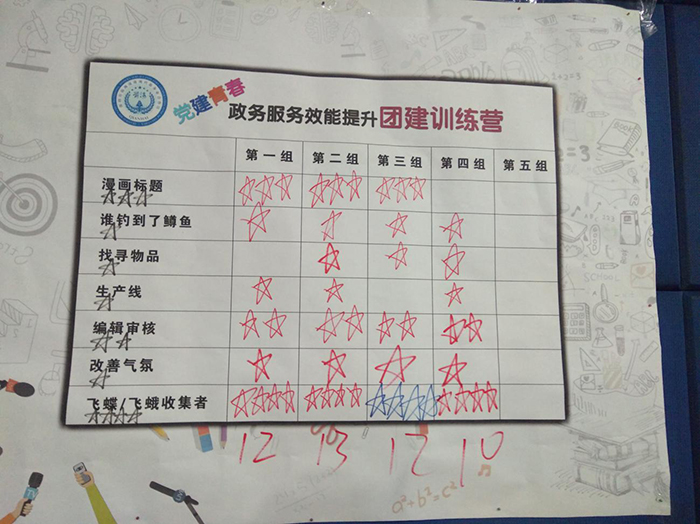 党建青春 政务服务效能提升 团建训练营
第一组 第二组 第三组 第四组 第五组
漫画标题
谁钓到了鳟鱼
找寻物品
生产线
编辑审核
改善气氛
飞蝶/飞蛾收集者
12 13 12 10
a²+b²=c²